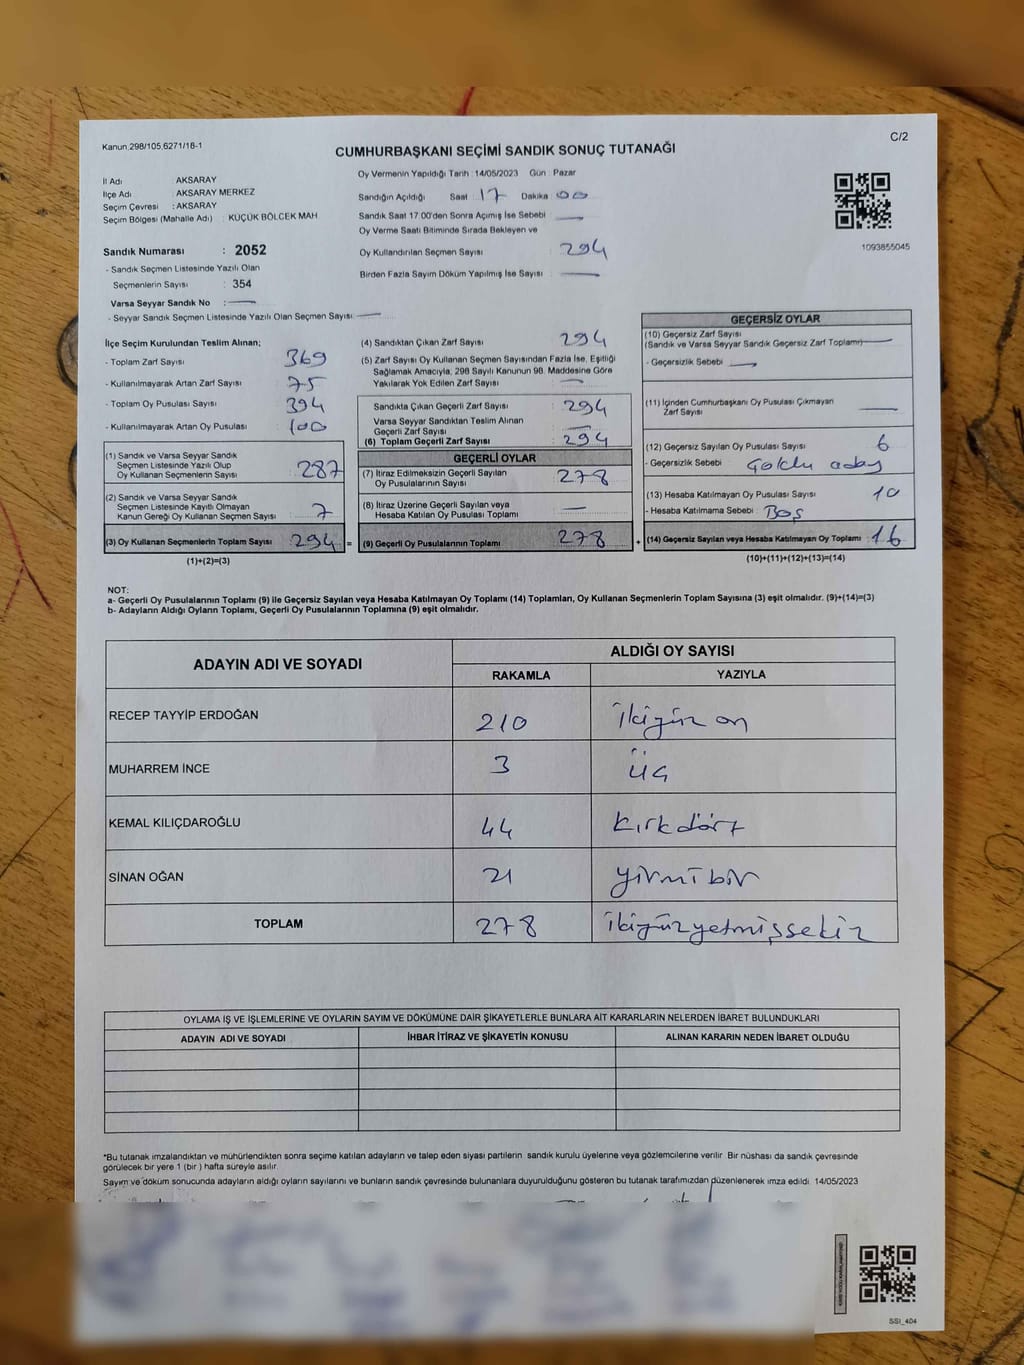 C/2
Kanun.298/105,6271/18-1
CUMHURBAŞKANI SEÇİMİ SANDIK SONUÇ TUTANAĞI
İl Adı : AKSARAY
İlçe Adı : AKSARAY MERKEZ
Seçim Çevresi : AKSARAY
Seçim Bölgesi (Mahalle Adı) : KÜÇÜK BÖLCEK MAH
Sandık Numarası : 2052
- Sandık Seçmen Listesinde Yazılı Olan
Seçmenlerin Sayısı : 354
Varsa Seyyar Sandık No :
- Seyyar Sandık Seçmen Listesinde Yazılı Olan Seçmen Sayısı:
Oy Vermenin Yapıldığı Tarih :14/05/2023 Gün : Pazar
Sandığın Açıldığı Saat : 17 Dakika : 00
Sandık Saat 17.00'den Sonra Açımış İse Sebebi :
Oy Verme Saati Bitiminde Sırada Bekleyen ve
Oy Kullandırılan Seçmen Sayısı : 294
Birden Fazla Sayım Döküm Yapılmış İse Sayısı :
1093855045
İlçe Seçim Kurulundan Teslim Alınan;
- Toplam Zarf Sayısı : 369
- Kullanılmayarak Artan Zarf Sayısı : 75
- Toplam Oy Pusulası Sayısı : 394
- Kullanılmayarak Artan Oy Pusulası : 100
(1) Sandık ve Varsa Seyyar Sandık
Seçmen Listesinde Yazılı Olup
Oy Kullanan Seçmenlerin Sayısı : 287
(2) Sandık ve Varsa Seyyar Sandık
Seçmen Listesinde Kayıtlı Olmayan
Kanun Gereği Oy Kullanan Seçmen Sayısı : 7
(3) Oy Kullanan Seçmenlerin Toplam Sayısı : 294 =
(1)+(2)=(3)
(4) Sandıktan Çıkan Zarf Sayısı : 294
(5) Zarf Sayısı Oy Kullanan Seçmen Sayısından Fazla İse, Eşitliği
Sağlamak Amacıyla, 298 Sayılı Kanunun 98. Maddesine Göre
Yakılarak Yok Edilen Zarf Sayısı :
Sandıkta Çıkan Geçerli Zarf Sayısı : 294
Varsa Seyyar Sandıktan Teslim Alınan
Geçerli Zarf Sayısı :
(6) Toplam Geçerli Zarf Sayısı : 294
GEÇERLİ OYLAR
(7) İtiraz Edilmeksizin Geçerli Sayılan
Oy Pusulalarının Sayısı : 278
(8) İtiraz Üzerine Geçerli Sayılan veya
Hesaba Katılan Oy Pusulası Toplamı :
(9) Geçerli Oy Pusulalarının Toplamı : 278 +
GEÇERSİZ OYLAR
(10) Geçersiz Zarf Sayısı
(Sandık ve Varsa Seyyar Sandık Geçersiz Zarf Toplamı) :
- Geçersizlik Sebebi :
(11) İçinden Cumhurbaşkanı Oy Pusulası Çıkmayan
Zarf Sayısı :
(12) Geçersiz Sayılan Oy Pusulası Sayısı : 6
- Geçersizlik Sebebi :
(13) Hesaba Katılmayan Oy Pusulası Sayısı : 10
- Hesaba Katılmama Sebebi : Boş
(14) Geçersiz Sayılan veya Hesaba Katılmayan Oy Toplamı : 16
(10)+(11)+(12)+(13)=(14)
NOT:
a- Geçerli Oy Pusulalarının Toplamı (9) ile Geçersiz Sayılan veya Hesaba Katılmayan Oy Toplamı (14) Toplamları, Oy Kullanan Seçmenlerin Toplam Sayısına (3) eşit olmalıdır. (9)+(14)=(3)
b- Adayların Aldığı Oyların Toplamı, Geçerli Oy Pusulalarının Toplamına (9) eşit olmalıdır.
ADAYIN ADI VE SOYADI ALDIĞI OY SAYISI
RAKAMLA YAZIYLA
RECEP TAYYİP ERDOĞAN 210 ikiyüz on
MUHARREM İNCE 3 üç
KEMAL KILIÇDAROĞLU 44 kırkdört
SİNAN OĞAN 21 yirmibir
TOPLAM 278 ikiyüzyetmişsekiz
OYLAMA İŞ VE İŞLEMLERİNE VE OYLARIN SAYIM VE DÖKÜMÜNE DAİR ŞİKAYETLERLE BUNLARA AİT KARARLARIN NELERDEN İBARET BULUNDUKLARI
ADAYIN ADI VE SOYADI İHBAR İTİRAZ VE ŞİKAYETİN KONUSU ALINAN KARARIN NEDEN İBARET OLDUĞU
*Bu tutanak imzalandıktan ve mühürlendikten sonra seçime katılan adayların ve talep eden siyasi partilerin sandık kurulu üyelerine veya gözlemcilerine verilir. Bir nüshası da sandık çevresinde
görülecek bir yere 1 (bir ) hafta süreyle asılır.
Sayım ve döküm sonucunda adayların aldığı oyların sayılarını ve bunların sandık çevresinde bulunanlara duyurulduğunu gösteren bu tutanak tarafımızdan düzenlenerek imza edildi. 14/05/2023
SSI_404